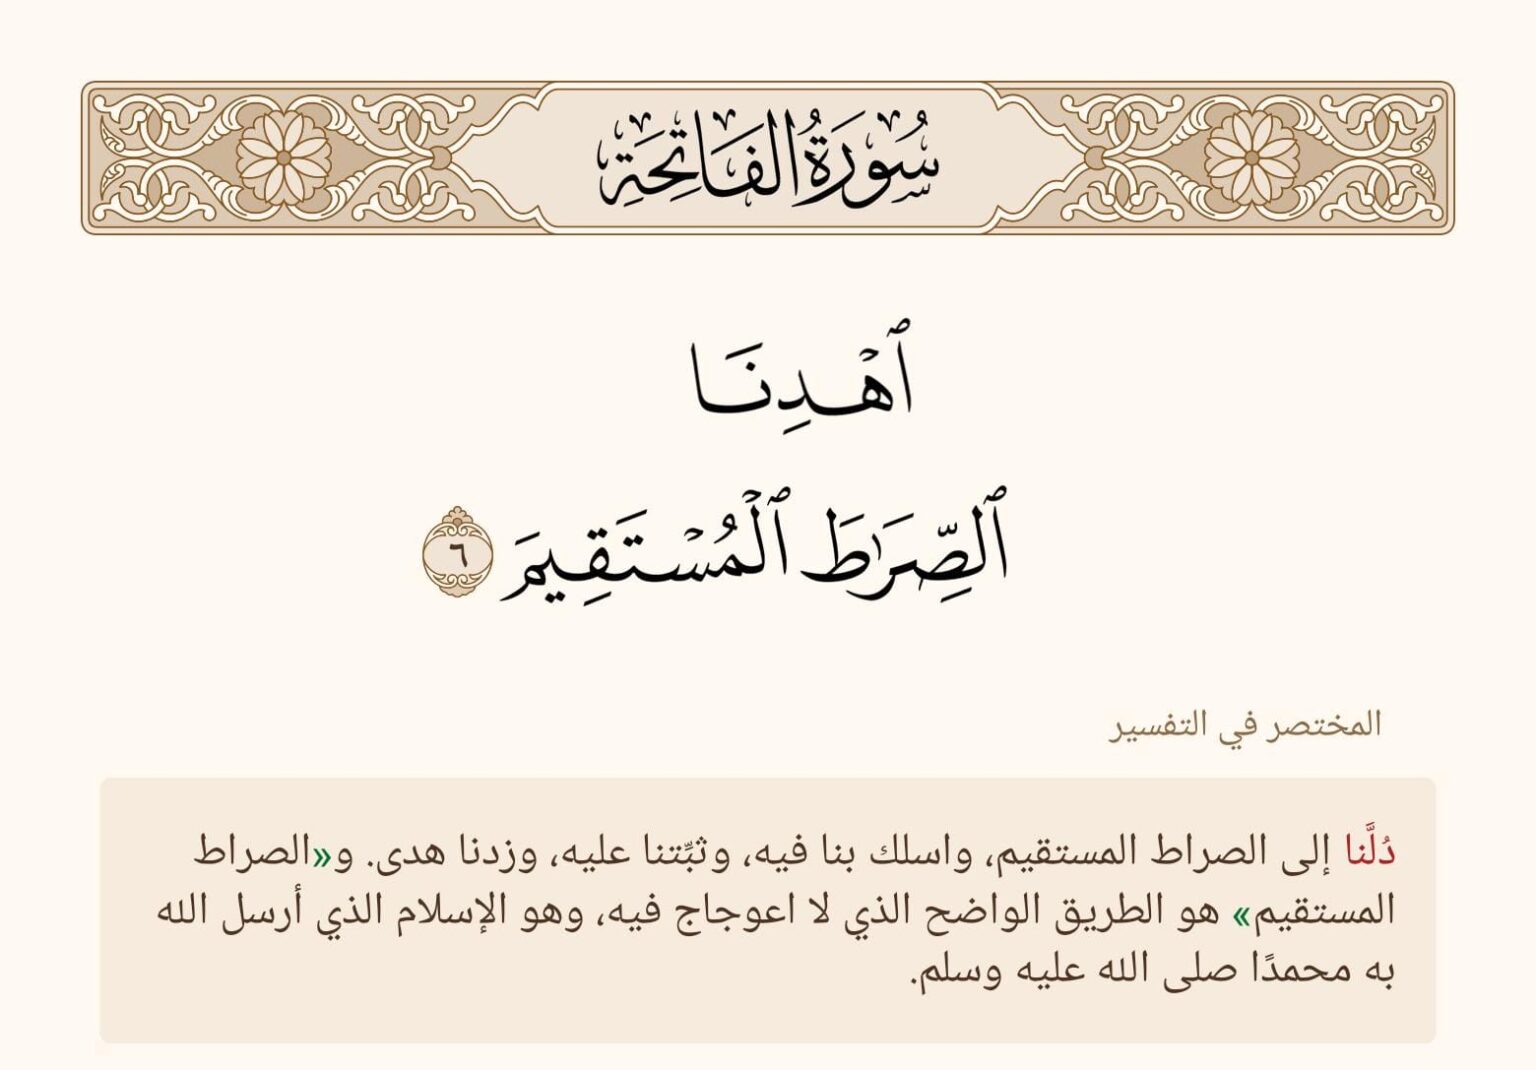 سُورَةُ الفَاتِحَةِ
ٱهۡدِنَا
ٱلصِّرَٰطَ ٱلۡمُسۡتَقِيمَ ٦
المختصر في التفسير
دُلَّنا إلى الصراط المستقيم، واسلك بنا فيه، وثبِّتنا عليه، وزدنا هدى. و«الصراط
المستقيم» هو الطريق الواضح الذي لا اعوجاج فيه، وهو الإسلام الذي أرسل الله
به محمدًا صلى الله عليه وسلم.